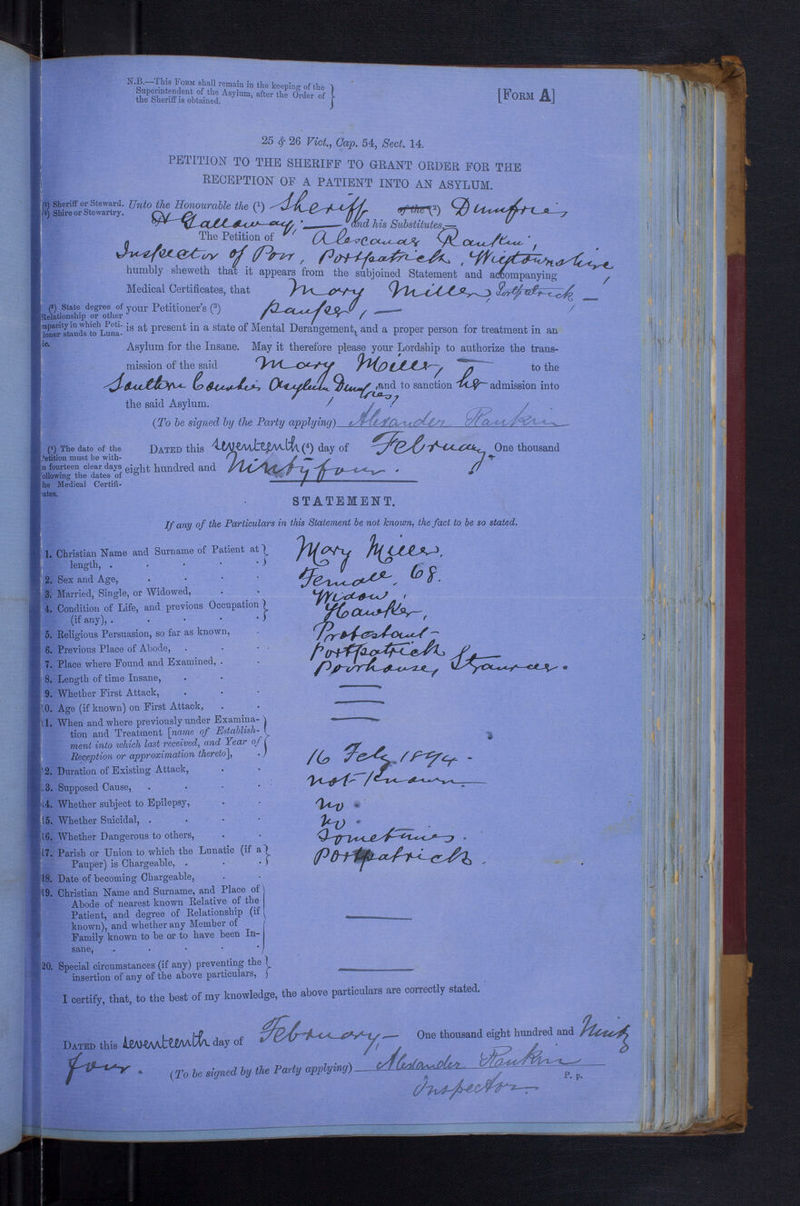 N.B.—This Form shall remain in the keeping of the
Superintendent of the Asylum, after the Order of
the Sheriff is obtained.
[Form A]
25 & 26 Vict., Cap. 54, Sect. 14.
PETITION TO THE SHERIFF TO GRANT ORDER FOR THE
RECEPTION OF A PATIENT INTO AN ASYLUM.
(1) Sheriff or Steward.
(2) Shire or Stewartry.
Unto the Honourable the (1) Sheriff of the (2) Dumfries
& Galloway, — and his Substitutes,—
The Petition of Alexander Rankin,
Inspector of Poor, Portpatrick, Wigtownshire
humbly sheweth that it appears from the subjoined Statement and accompanying
Medical Certificates, that Mary Miller, Portpatrick —
(3) State degree of
Relationship or other
capacity in which Peti-
tioner stands to Luna-
tic.
your Petitioner's (3) pauper, —
is at present in a state of Mental Derangement, and a proper person for treatment in an
Asylum for the Insane. May it therefore please your Lordship to authorize the trans-
mission of the said Mary Miller, — to the
Southern Counties Asylum Dumfries, and to sanction her admission into
the said Asylum.
(To be signed by the Party applying) Alexander Rankin
(4) The date of the
Petition must be with-
in fourteen clear days
following the dates of
the Medical Certifi-
cates.
Dated this seventeenth (4) day of February One thousand
eight hundred and Ninety four.
STATEMENT.
If any of the Particulars in this Statement be not known, the fact to be so stated.
1. Christian Name and Surname of Patient at
length, . Mary Miller.
2. Sex and Age, Female, 68.
3. Married, Single, or Widowed, Widow,
4. Condition of Life, and previous Occupation
(if any), . Hawker,
5. Religious Persuasion, so far as known, Protestant —
6. Previous Place of Abode, . Portpatrick
7. Place where Found and Examined, . Poorhouse, Stranraer.
8. Length of time Insane,
9. Whether First Attack, —
10. Age (if known) on First Attack, —
11. When and where previously under Examina-
tion and Treatment [name of Establish-
ment into which last received, and Year of
Reception or approximation thereto], —
12. Duration of Existing Attack, 16 Feby. 1894 -
13. Supposed Cause, not known
14. Whether subject to Epilepsy, no
15. Whether Suicidal, . no
16. Whether Dangerous to others, Sometimes.
17. Parish or Union to which the Lunatic (if a
Pauper) is Chargeable, . Portpatrick.
18. Date of becoming Chargeable,
19. Christian Name and Surname, and Place of
Abode of nearest known Relative of the
Patient, and degree of Relationship (if
known), and whether any Member of
Family known to be or to have been In-
sane, —
20. Special circumstances (if any) preventing the
insertion of any of the above particulars, —
I certify, that, to the best of my knowledge, the above particulars are correctly stated.
Dated this seventeenth day of February — One thousand eight hundred and Ninety
four. (To be signed by the Party applying) Alexander Rankin
Inspector P. p.